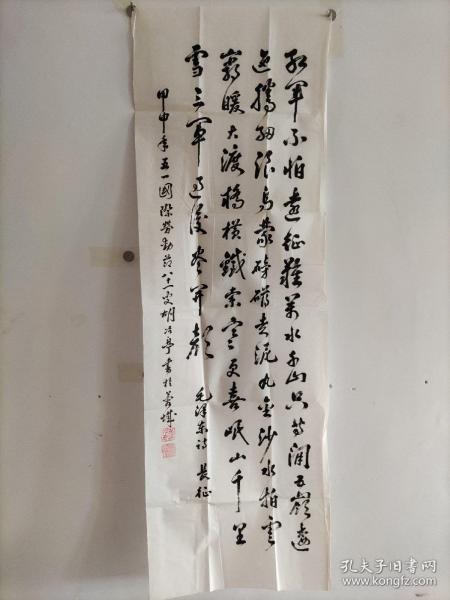 红军不怕远征难萬水千山只等閒五嶺逶
迤腾细浪乌蒙磅礴走泥丸金沙水拍雲
崖暖大渡橋横鐵索寒更喜岷山千里
雪三軍过後尽开颜 毛泽东诗 長征
甲申年五一國際勞動节八十一叟胡冶亭書於蕪城
孔夫子旧书网
www.kongfz.com